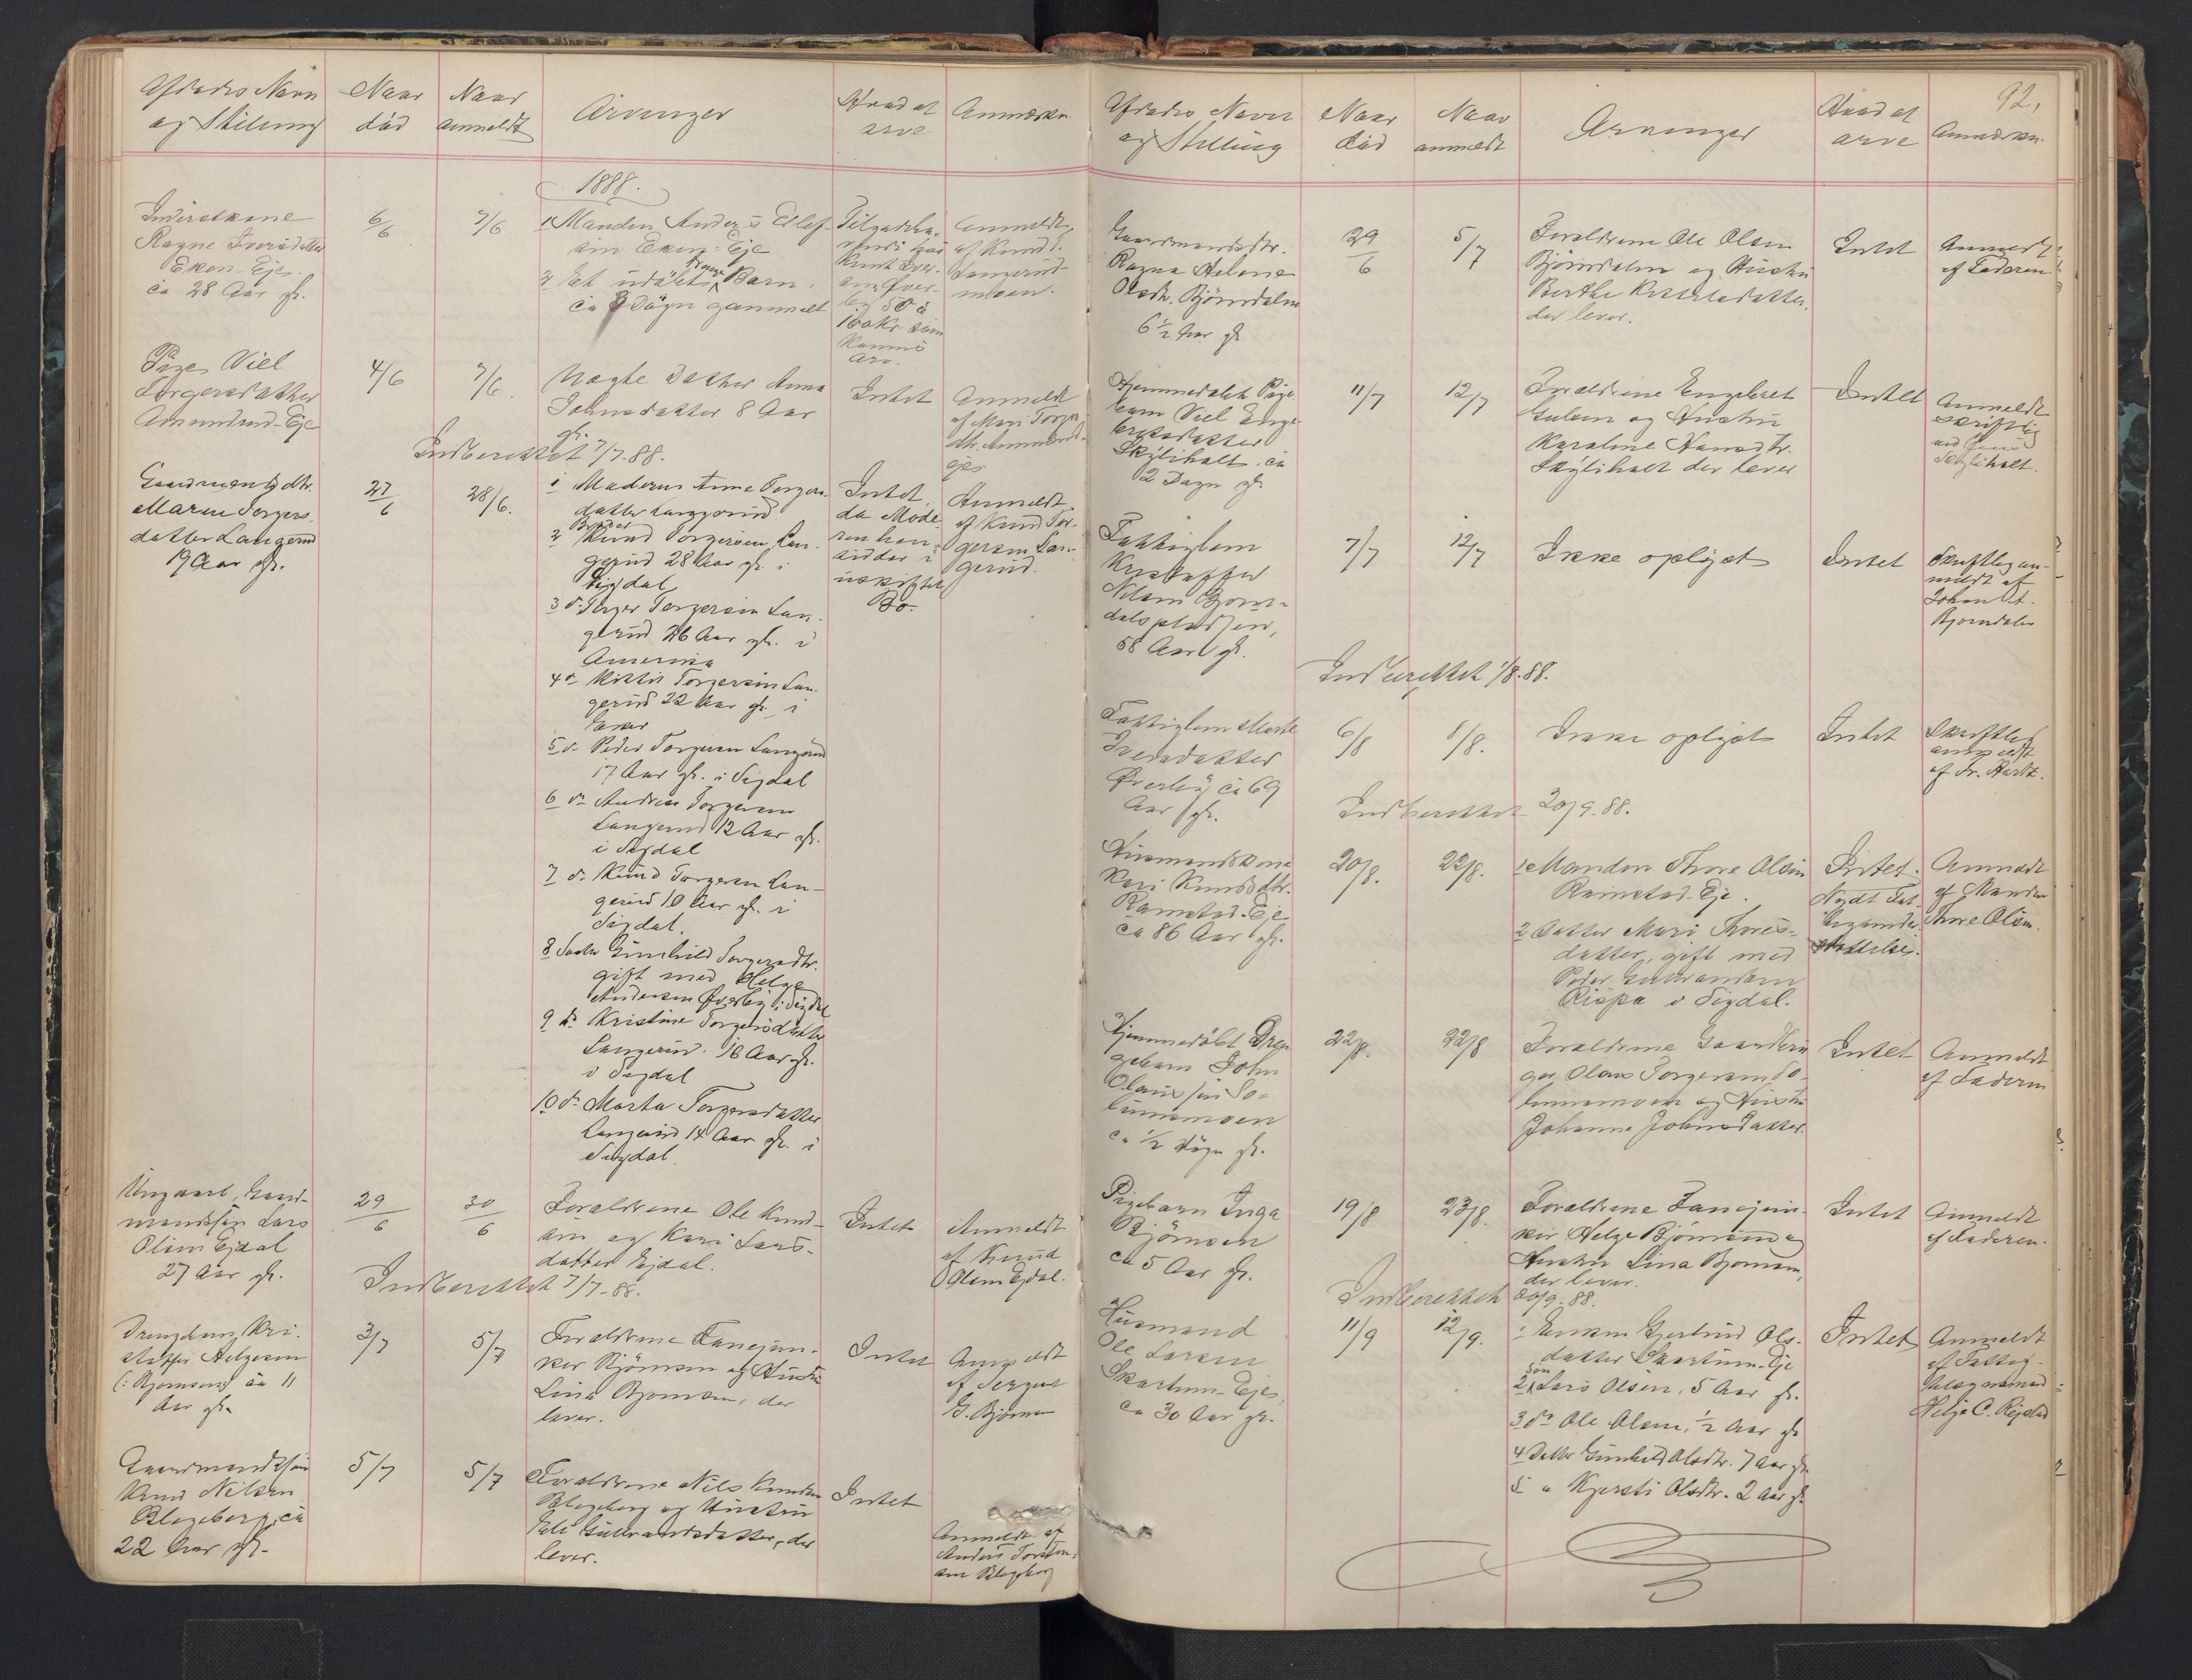 Afdødes Navn
og Stilling
Naar
død
Naar
anmeldt
Arvinger
Hvad at
arve
Anmærkn.
1888.
Inderstkone
Ragne Iversdatter
Eken-Eje.
ca 28 Aar gl.
6/6
7/6
1 Manden Anders Ellef-
sen Eken-Eje
2 Et udøbt Drenge Barn,
ca 8 Døgn gammelt
100 Kr som
Arv.
Anmeldt
af Knud
moen.
Pige Viel
Torgersdatter
Amundrud-Eje
4/6
7/6.
Uægte Datter Anna
Johnsdatter 8 Aar
gl.
Intet
Anmeldt
af Mari Torgr.
dtr. Amundrud-
eje
Indberettet 7/7-88.
Gaardmandsdtr.
Maren Torgers-
datter Langerud
19 Aar gl.
27/6
28/6.
1 Moderen Anne Torgers-
datter Langgerud
2 Broder Knud Torgersen Lan-
gerud 28 Aar gl. i
Sigdal
3 do. Torger Torgersen Lan-
gerud 26 Aar gl. i
Amerika
4 do Kittil Torgersen Lan-
gerud 22 Aar gl. i
Eker
5 do Peder Torgersen Langerud
17 Aar gl. i Sigdal
6 do Andreas Torgersen
Langerud 12 Aar gl.
i Sigdal
7 do. Knud Torgersen Lan-
gerud 10 Aar gl. i
Sigdal.
8 Søster Gunhild Torgersdtr.
gift med Helge
Andersen Øverby i Sigdal
9 do Kristine Torgersdatter
Langerud. 18 Aar gl.
i Sigdal
10 do. Marta Torgersdatter
Langerud 14 Aar gl. i
Sigdal.
Intet,
da Mode-
ren hen-
sidder i
uskiftet
Bo.
Anmeldt
af Knud Tor-
gersen Lan-
gerud.
Ungkarl, Gaard-
mandssøn Lars
Olsen Ejdal
27 Aar gl.
29/6
30/6
Forældrene Ole Knud-
sen og Kari Lars-
datter Ejdal.
Intet
Anmeldt
af Knud
Olsen Ejdal.
Indberettet 7/7-88.
Drengebarn Kri-
stoffer Helgesen
(: Bjørnsen) ca 11
Aar gl.
3/7
5/7
Forældrene Fanejun-
ker Bjørnsen og Hustru
Lina Bjørnsen, der
lever.
Intet
Anmeldt
af Sergent
G. Bjørnsen
Gaardmandssøn
Knud Nilsen
Blegeberg, ca
22 Aar gl.
5/7
5/7
Forældrene Nils Knudsen
Blegeberg og Hustru
Eli Gulbrandsdatter, der
lever.
Intet
Anmeldt af
Anders Torsten-
sen Blegeberg
92.
Afdødes Navn
og Stilling
Naar
død
Naar
anmeldt
Arvinger
Hvad at
arve
Anmærkn.
Gaardmandsdtr.
Ragna Helene
Olsdtr. Bjørndalen
6 1/2 Aar gl.
29/6
5/7
Forældrene Ole Olsen
Bjørndalen og Hustru
Berthe Kittelsdatter,
der lever.
Intet
Anmeldt
af Faderen
Hjemmedøbt Pige-
barn Viel Enge-
bretsdatter
Skylihalt, ca
2 Døgn gl.
11/7
12/7
Forældrene Engebret
Gulsen og Hustru
Karoline Hansdtr.
Skylihalt der lever
Intet
Anmeldt
skriftlig
Skylihalt.
Fattiglem
Kristoffer
Nilsen Bjørn-
dalspladsen,
58 Aar gl.
7/7
12/7
Ikke oplyst
Intet
Skriftlig an-
meldt af
Johan
Bjørndalen
Indberettet 1/8.88.
Fattiglem Marte
datter
Øverby ca 69
Aar gl.
6/8
8/8.
Ikke oplyst
Intet
Skriftlig
anmeldt
af
Indberettet 20/9.88.
Husmandskone
Kari Knudsdtr.
Ramstad-Eje
ca 86 Aar gl.
20/8.
22/8.
1 Manden Thore Olsen
Ramstad-Eje.
2 Datter Mari Thores-
datter, gift med
Peder Gulbrandsen
Rispa i Sigdal.
Intet.
Nydt Fat-
tigunder-
støttelse.
Anmeldt
af Manden
Thore Olsen.
Hjemmedøbt Dren-
gebarn John
Olaussøn So-
lumsmoen
ca 1/2 Døgn gl.
22/8.
22/8
Forældrene Gaardbru-
ger Olaus Torgersen So-
lumsmoen og Hustru
Johanne Johnsdatter.
Intet
Anmeldt
af Faderen
Pigebarn Inga
Bjørnsen
ca 5 Aar gl.
19/8
23/8.
Forældrene Fanejun-
ker Helge Bjørnsen og
Hustru Lina Bjørnsen,
der lever.
Intet
Anmeldt
af Faderen.
Indberettet 20/9.88.
Husmand
Ole Larsen
Skartum-Eje,
ca 30 Aar gl.
11/9
12/9.
1 Enken Gjertrud Ols-
datter Skartum-Eje
2 Søn Lars Olsen, 5 Aar gl.
3 do Ole Olsen, 1/2 Aar gl.
4 Datter Gunhild Olsdtr. 7 Aar gl.
5 " Kjersti Olsdtr. 2 Aar gl.
Intet
Anmeldt
af Fattig-
Helge C. Rejstad